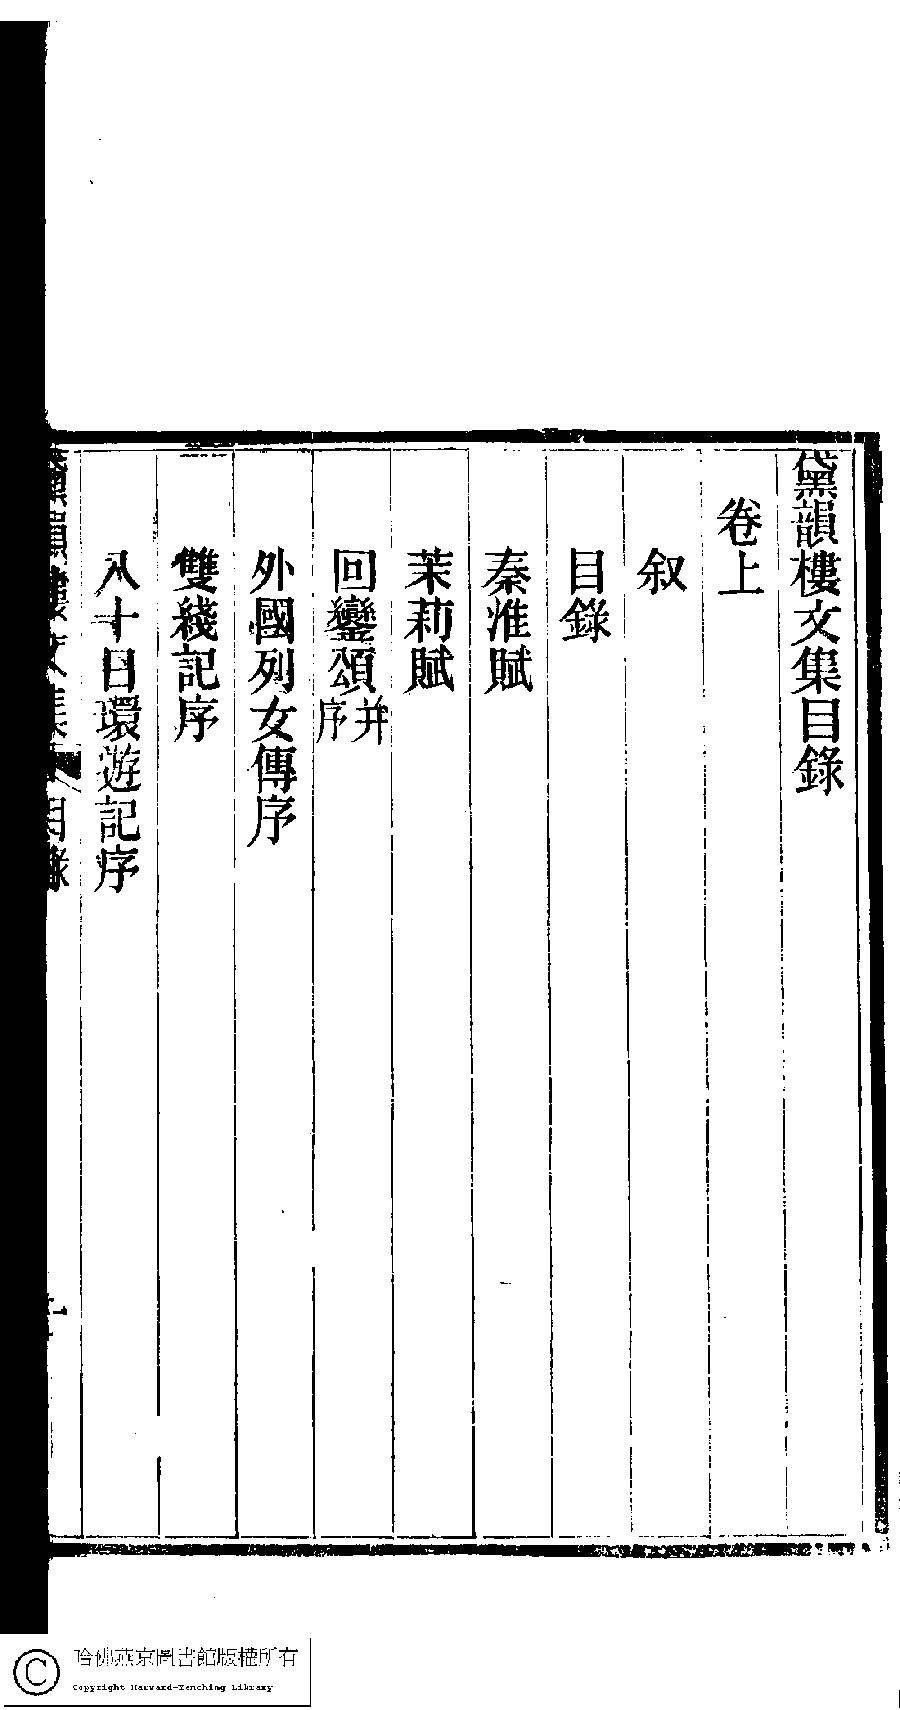 黛韻樓文集目錄
卷上
叙
目錄
秦淮賦
茉莉賦
回鑾頌并序
外國列女傳序
雙綫記序
八十日環遊記序
黛韻樓文集 目錄
哈佛燕京圖書館版權所有
Copyright Harvard-Yenching Library